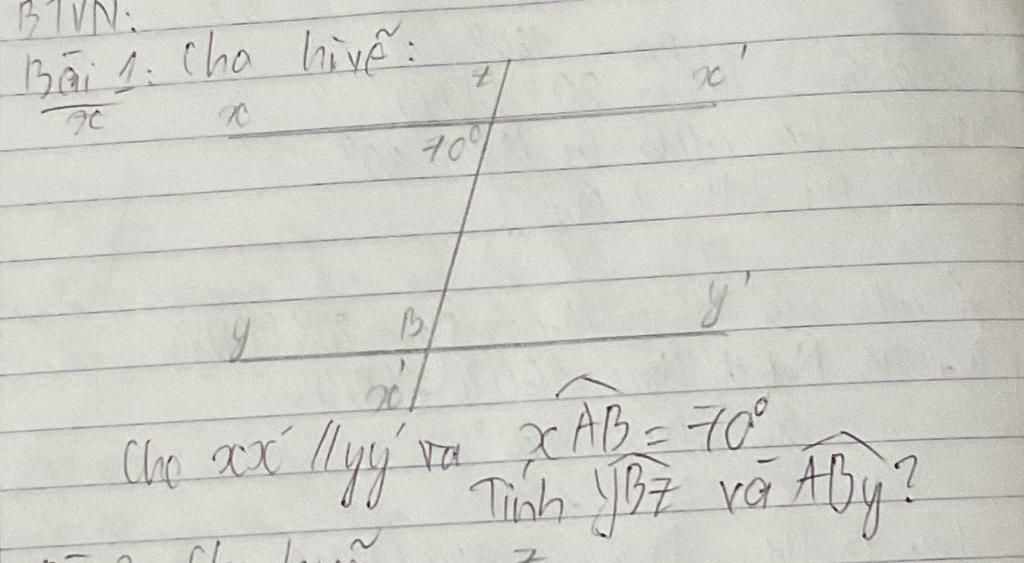 BTVN:
Bài 1: Cho hìvẽ:
x x z x'
70°
y B y'
Cho xx' // yy' và xAB = 70°
Tính yBz và ABy?